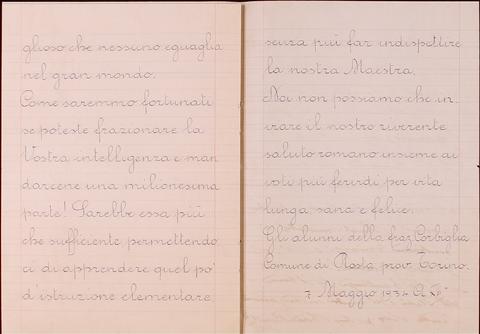 glioso che nessuno eguaglia
nel gran mondo.
Come saremmo fortunati
se poteste frazionare la
Vostra intelligenza e man
darcene una milionesima
parte! Sarebbe essa più
che sufficiente permettendo
ci di apprendere quel po'
d'istruzione elementare
senza più far indispettire
la nostra Maestra.
Noi non possiamo che in
viare il nostro riverente
saluto romano insieme ai
voti più fervidi per vita
lunga, sana e felice.
Gli alunni della fraz. Corbiglia
Comune di Rosta prov. Torino.
7 Maggio 193